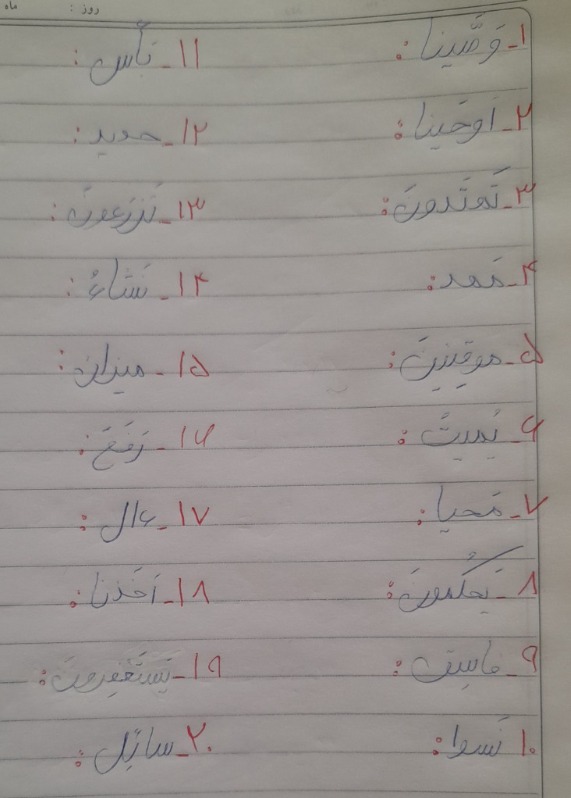 روز : ماه
۱_ وَصَّینا :
۲_ اَوحَینا :
۳_ تَمتَدونَ :
۴_ مَهد :
۵_ موقِنینَ :
۶_ یُمیتُ :
۷_ مَحیا :
۸_ یَحکُمونَ :
۹_ فاسِق :
۱۰_ نَسوا :
۱۱_ بَأس :
۱۲_ حدید :
۱۳_ تَزرَعونَ :
۱۴_ نَشاءُ :
۱۵_ میزان :
۱۶_ رَفَعَ :
۱۷_ ءال :
۱۸_ اَخَذنا :
۱۹_ یَستَغفِرونَ :
۲۰_ سائِل :